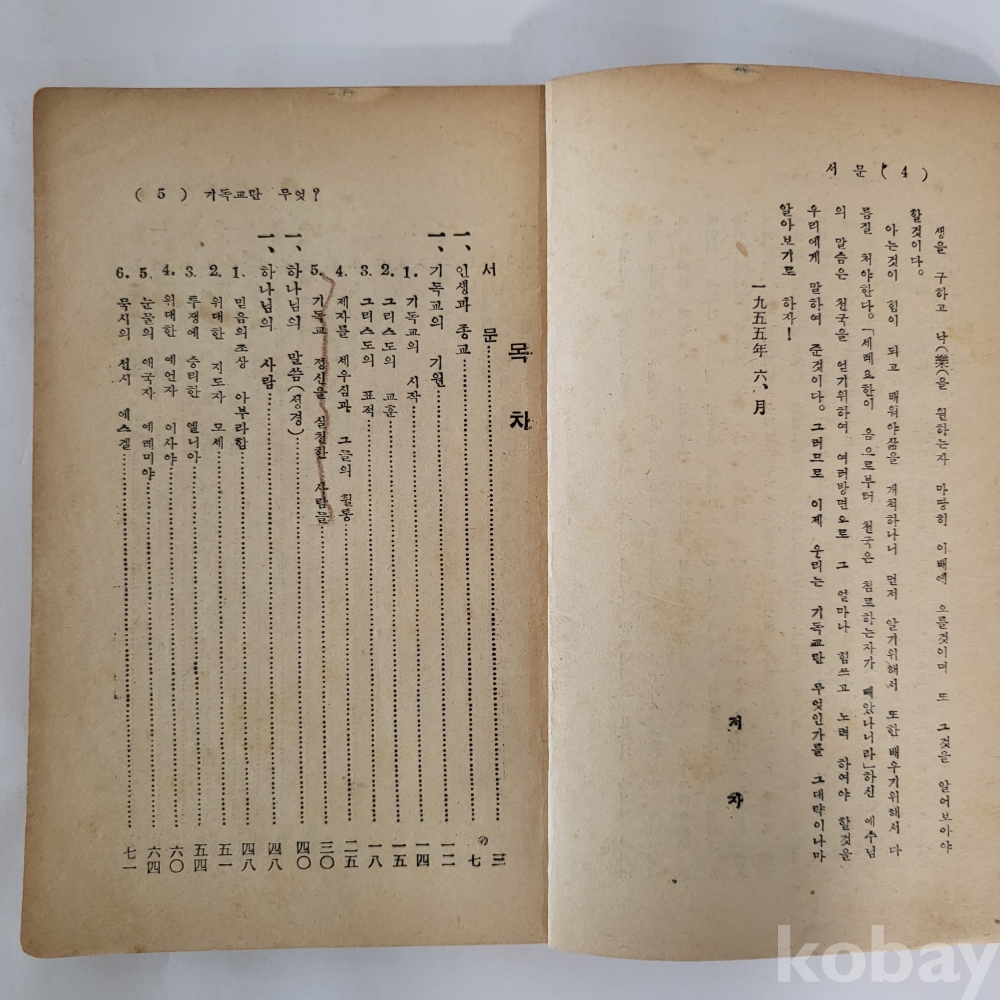 서문 ( 4 )
생을 구하고 낙(樂)을 원하는자 마땅히 이배에 오를것이며 또 그것을 알어보아야
할것이다。
아는것이 힘이 되고 배워야삶을 개척하나니 먼저 알기위해서 또한 배우기위해서 다
름질 처야한다。「세례요한이 옴으로부터 천국은 침로하는자가 빼았나니라」하신 예수님
의 말씀은 천국을 얻기위하여 여러방면으로 그 얼마나 힘쓰고 노력 하여야 할것을
우리에게 말하여 준것이다。그러므로 이제 우리는 기독교란 무엇인가를 그대략이나마
알아보기로 하자!
一九五五年 六、月
저 자
( 5 ) 기독교란 무엇?
목 차
서 문 三
一、인생과 종교 七
一、기독교의 기원 一二
1. 기독교의 시작 一四
2. 그리스도의 교훈 一五
3. 그리스도의 표적 一八
4. 제자를 세우심과 그들의 활동 二五
5. 기독교 정신을 실천한 사람들 三〇
一、하나님의 말씀(성경) 四〇
一、하나님의 사람 四八
1. 믿음의조상 아부라함 四八
2. 위대한 지도자 모세 五一
3. 투쟁에 승리한 엘니아 五四
4. 위대한 예언자 이사야 六〇
5. 눈물의 애국자 예레미야 六四
6. 묵시의 선지 에스겔 七一
kobay